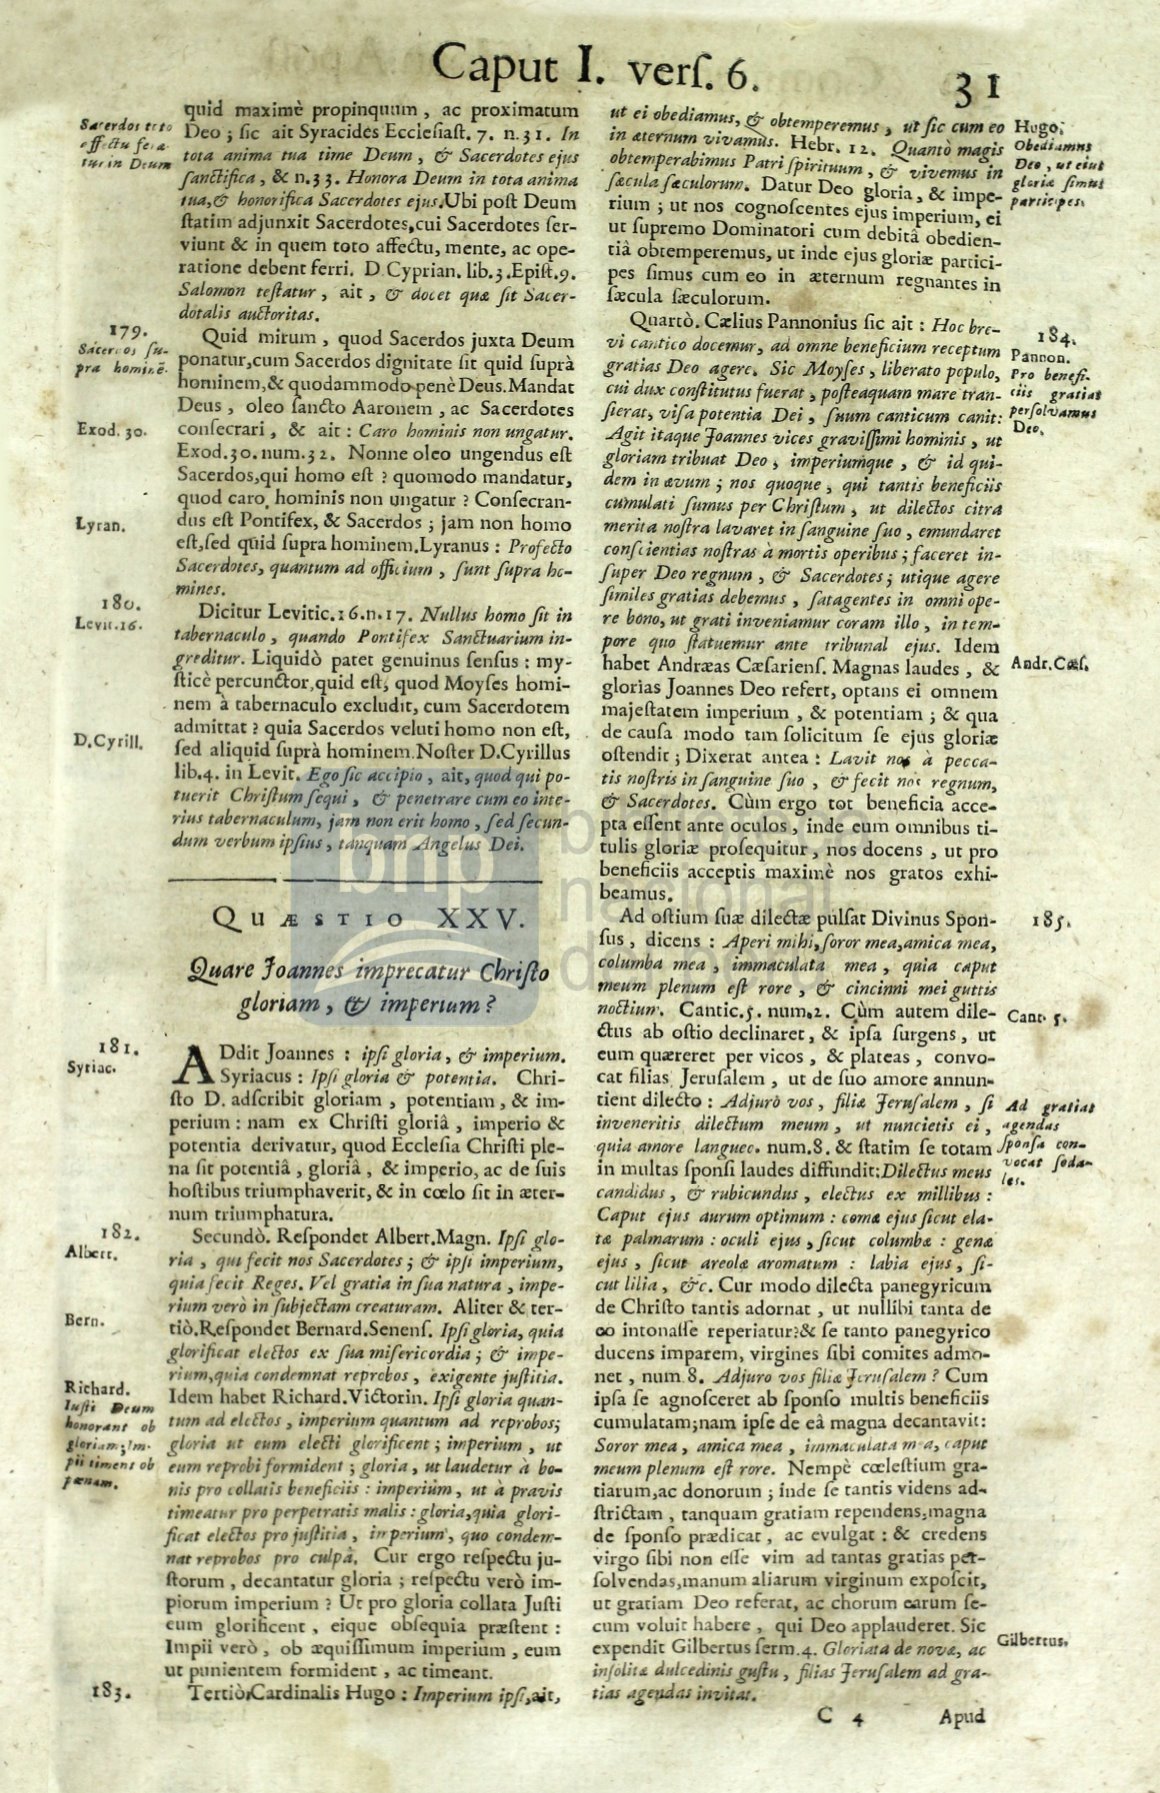 Caput I. verſ. 6.
31
Sacerdos toto
affectu fera-
tur in Deum
quid maximè propinquum, ac proximatum
Deo; ſic ait Syracides Eccleſiaſt. 7. n. 31. In
tota anima tua time Deum, & Sacerdotes ejus
ſanctifica, & n. 33. Honora Deum in tota anima
tua, & honorifica Sacerdotes ejus. Ubi poſt Deum
ſtatim adjunxit Sacerdotes, cui Sacerdotes ſer-
viunt & in quem toto affectu, mente, ac ope-
ratione debent ferri. D. Cyprian. lib. 3. Epiſt. 9.
Salomon teſtatur, ait, & docet quæ ſit Sacer-
dotalis auctoritas.
179.
Sacerdos ſu-
pra hominē.
Exod. 30.
Lyran.
Quid mirum, quod Sacerdos juxta Deum
ponatur, cum Sacerdos dignitate ſit quid ſuprà
hominem, & quodammodo penè Deus. Mandat
Deus, oleo ſancto Aaronem, ac Sacerdotes
conſecrari, & ait: Caro hominis non ungatur.
Exod. 30. num. 32. Nonne oleo ungendus eſt
Sacerdos, qui homo eſt? quomodo mandatur,
quod caro hominis non ungatur? Conſecran-
dus eſt Pontifex, & Sacerdos; jam non homo
eſt, ſed quid ſupra hominem. Lyranus: Profecto
Sacerdotes, quantum ad officium, ſunt ſupra ho-
mines.
180.
Levit. 16.
D. Cyrill.
Dicitur Levitic. 16. n. 17. Nullus homo ſit in
tabernaculo, quando Pontifex Sanctuarium in-
greditur. Liquidò patet genuinus ſenſus: my-
ſticè percunctor, quid eſt, quod Moyſes homi-
nem à tabernaculo excludit, cum Sacerdotem
admittat? quia Sacerdos veluti homo non eſt,
ſed aliquid ſuprà hominem. Noſter D. Cyrillus
lib. 4. in Levit. Ego ſic accipio, ait, quod qui po-
tuerit Chriſtum ſequi, & penetrare cum eo inte-
rius tabernaculum, jam non erit homo, ſed ſecun-
dum verbum ipſius, tanquam Angelus Dei.
QUÆSTIO XXV.
Quare Joannes imprecatur Chriſto
gloriam, & imperium?
181.
Syriac.
ADdit Joannes: ipſi gloria, & imperium.
Syriacus: Ipſi gloria & potentia. Chri-
ſto D. adſcribit gloriam, potentiam, & im-
perium: nam ex Chriſti gloriâ, imperio &
potentia derivatur, quod Eccleſia Chriſti ple-
na ſit potentiâ, gloriâ, & imperio, ac de ſuis
hoſtibus triumphaverit, & in cœlo ſit in æter-
num triumphatura.
182.
Albert.
Bern.
Richard.
Iuſti Deum
honorant ob
gloriam; Im-
pii timent ob
pœnam.
Secundò. Reſpondet Albert. Magn. Ipſi glo-
ria, qui fecit nos Sacerdotes; & ipſi imperium,
quia fecit Reges. Vel gratia in ſua natura, impe-
rium verò in ſubjectam creaturam. Aliter & ter-
tiò. Reſpondet Bernard. Senenſ. Ipſi gloria, quia
glorificat electos ex ſua miſericordia; & impe-
rium, quia condemnat reprobos, exigente juſtitia.
Idem habet Richard. Victorin. Ipſi gloria quan-
tum ad electos, imperium quantum ad reprobos;
gloria ut eum electi glorificent; imperium, ut
eum reprobi formident; gloria, ut laudetur à bo-
nis pro collatis beneficiis: imperium, ut à pravis
timeatur pro perpetratis malis: gloria, quia glori-
ficat electos pro juſtitia, imperium, quo condem-
nat reprobos pro culpâ. Cur ergo reſpectu ju-
ſtorum, decantatur gloria; reſpectu verò im-
piorum imperium? Ut pro gloria collata Juſti
eum glorificent, eique obſequia præſtent:
Impii verò, ob æquiſſimum imperium, eum
ut punientem formident, ac timeant.
183.
Tertiò. Cardinalis Hugo: Imperium ipſi, ait,
ut ei obediamus, & obtemperemus, ut ſic cum eo
in æternum vivamus. Hebr. 12. Quantò magis
obtemperabimus Patri ſpirituum, & vivemus in
ſæcula ſæculorum. Datur Deo gloria, & impe-
rium; ut nos cognoſcentes ejus imperium, ei
ut ſupremo Dominatori cum debitâ obedien-
tiâ obtemperemus, ut inde ejus gloriæ partici-
pes ſimus cum eo in æternum regnantes in
ſæcula ſæculorum.
Hugo.
Obediamus
Deo, ut ejus
gloriæ ſimus
participes.
Quartò. Cælius Pannonius ſic ait: Hoc bre-
vi cantico docemur, ad omne beneficium receptum
gratias Deo agere. Sic Moyſes, liberato populo,
cui dux conſtitutus fuerat, poſteaquam mare tran-
ſierat, viſa potentia Dei, ſuum canticum canit:
Agit itaque Joannes vices graviſſimi hominis, ut
gloriam tribuat Deo, imperiumque, & id qui-
dem in ævum; nos quoque, qui tantis beneficiis
cumulati ſumus per Chriſtum, ut dilectos citra
merita noſtra lavaret in ſanguine ſuo, emundaret
conſcientias noſtras à mortis operibus; faceret in-
ſuper Deo regnum, & Sacerdotes; utique agere
ſimiles gratias debemus, ſatagentes in omni ope-
re bono, ut grati inveniamur coram illo, in tem-
pore quo ſtatuemur ante tribunal ejus. Idem
habet Andræas Cæſarienſ. Magnas laudes, &
glorias Joannes Deo refert, optans ei omnem
majeſtatem imperium, & potentiam; & qua
de cauſa modo tam ſolicitum ſe ejus gloriæ
oſtendit; Dixerat antea: Lavit nos à pecca-
tis noſtris in ſanguine ſuo, & fecit nos regnum,
& Sacerdotes. Cùm ergo tot beneficia acce-
pta eſſent ante oculos, inde eum omnibus ti-
tulis gloriæ proſequitur, nos docens, ut pro
beneficiis acceptis maximè nos gratos exhi-
beamus.
184.
Pannon.
Pro benefi-
ciis gratias
perſolvamus
Deo.
Andr. Cæſ.
Ad oſtium ſuæ dilectæ pulſat Divinus Spon-
ſus, dicens: Aperi mihi, ſoror mea, amica mea,
columba mea, immaculata mea, quia caput
meum plenum eſt rore, & cincinni mei guttis
noctium. Cantic. 5. num. 2. Cùm autem dile-
ctus ab oſtio declinaret, & ipſa ſurgens, ut
eum quæreret per vicos, & plateas, convo-
cat filias Jeruſalem, ut de ſuo amore annun-
tient dilecto: Adjurò vos, filiæ Jeruſalem, ſi
inveneritis dilectum meum, ut nuncietis ei,
quia amore langueo. num. 8. & ſtatim ſe totam
in multas ſponſi laudes diffundit: Dilectus meus
candidus, & rubicundus, electus ex millibus:
Caput ejus aurum optimum: comæ ejus ſicut ela-
tæ palmarum: oculi ejus, ſicut columbæ: genæ
ejus, ſicut areolæ aromatum: labia ejus, ſi-
cut lilia, &c. Cur modo dilecta panegyricum
de Chriſto tantis adornat, ut nullibi tanta de
eo intonaſſe reperiatur? & ſe tanto panegyrico
ducens imparem, virgines ſibi comites admo-
net, num. 8. Adjuro vos filiæ Jeruſalem? Cum
ipſa ſe agnoſceret ab ſponſo multis beneficiis
cumulatam; nam ipſe de eâ magna decantavit:
Soror mea, amica mea, immaculata mea, caput
meum plenum eſt rore. Nempè cœleſtium gra-
tiarum, ac donorum; inde ſe tantis videns ad-
ſtrictam, tanquam gratiam rependens, magna
de ſponſo prædicat, ac evulgat: & credens
virgo ſibi non eſſe vim ad tantas gratias per-
ſolvendas, manum aliarum virginum expoſcit,
ut gratiam Deo referat, ac chorum earum ſe-
cum voluit habere, qui Deo applauderet. Sic
expendit Gilbertus ſerm. 4. Gloriata de novæ, ac
inſolitæ dulcedinis guſtu, filias Jeruſalem ad gra-
tias agendas invitat.
185.
Cant. 5.
Ad gratias
agendas
ſponſa con-
vocat ſoda-
les.
Gilbertus.
C 4
Apud
bnp
nacional